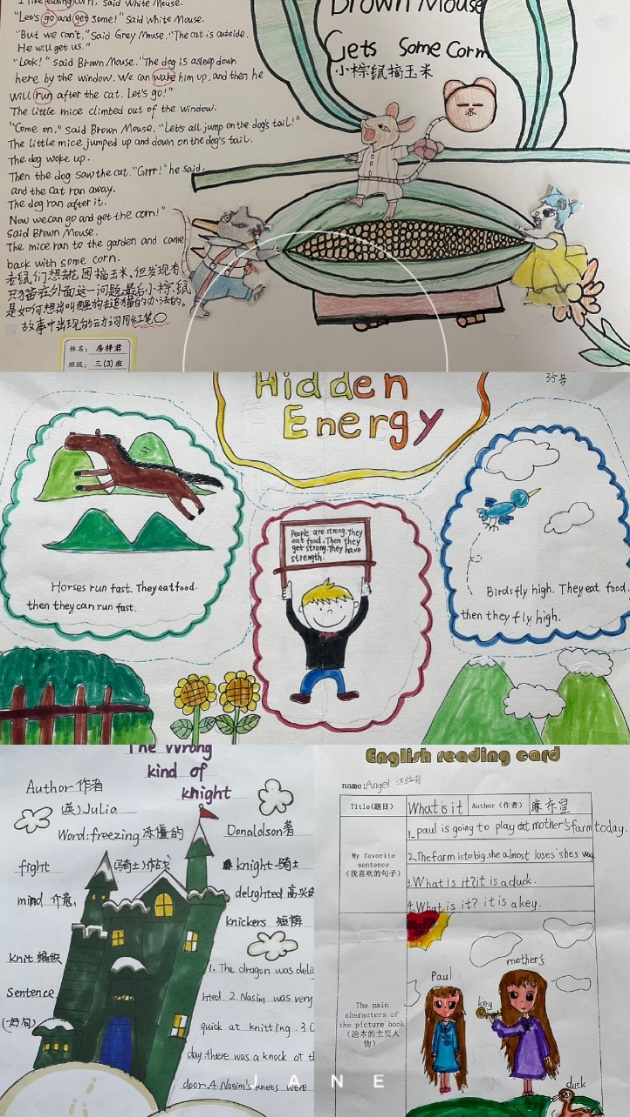 I like eating corn, said White Mouse.
"Let's go and get some!" Said White Mouse.
"But we can't," Said Grey Mouse. "The cat is outside.
He will get us."
"Look!" said Brown Mouse. "The dog is asleep down
here by the window. We can wake him up, and then he
will run after the cat. Let's go!"
The little mice climbed out of the window.
"Come on," Said Brown Mouse. "Lets all jump on the dog's tail!"
The little mice jumped up and down on the dog's tail.
The dog woke up.
Then the dog saw the cat. "Grrr!" he said.
and the cat ran away.
The dog ran after it.
Now we can go and get the corn!"
said Brown Mouse.
The mice ran to the garden and came
back with some corn.
只猫在外面这一问题,最后小棕鼠
是如何想出叫醒狗去追猫的办法的。
故事中出现的动词用红笔〇
姓名:
班级: 三(3)班
Brown Mouse
Gets Some Corn
小棕鼠搞玉米
Hidden
Energy
Horses run fast. They eat food.
then they can run fast.
People are strong. They
eat food. Then they
get strong. They have
strength.
Birds fly high. They eat food.
then they fly high.
The Wrong
kind of
knight
Author 作者
(英) Julia
Donaldson 著
Word: freezing 冻僵的
fight
knight 骑士
mind 介意
delighted
knickers 短裤
knit 编织
Sentence
(好句)
1. The dragon was
2. Nasim was very
quick at knitting. 3.
day there was a knock at
door. 4. Nasim's knees were
English reading card
name: Angel
Title(题目) What is it Author (作者)
My favorite
sentence
(我喜欢的句子)
1. paul is going to play at mother's farm today.
2. The farm is to big. she almost loses she's way
3. What is it? it is a duck.
4. What is it? it is a key.
The main
characters of
the picture book
(绘本的主要人
物)
Paul
mother's
key
duck
JANE